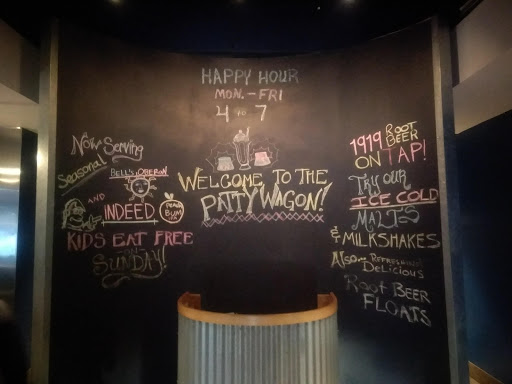 HAPPY HOUR
MON. - FRI
4 TO 7
Now Serving
Seasonal
BELL'S OBERON
AND
INDEED
BUM
KIDS EAT FREE
ON
SUNDAY!
WELCOME TO THE
PATTY WAGON!
1919 ROOT
BEER
ON TAP!
Try OUR
ICE COLD
MALTS
& MILKSHAKES
Also... REFRESHING
DELICIOUS
Root BEER
FLOATS